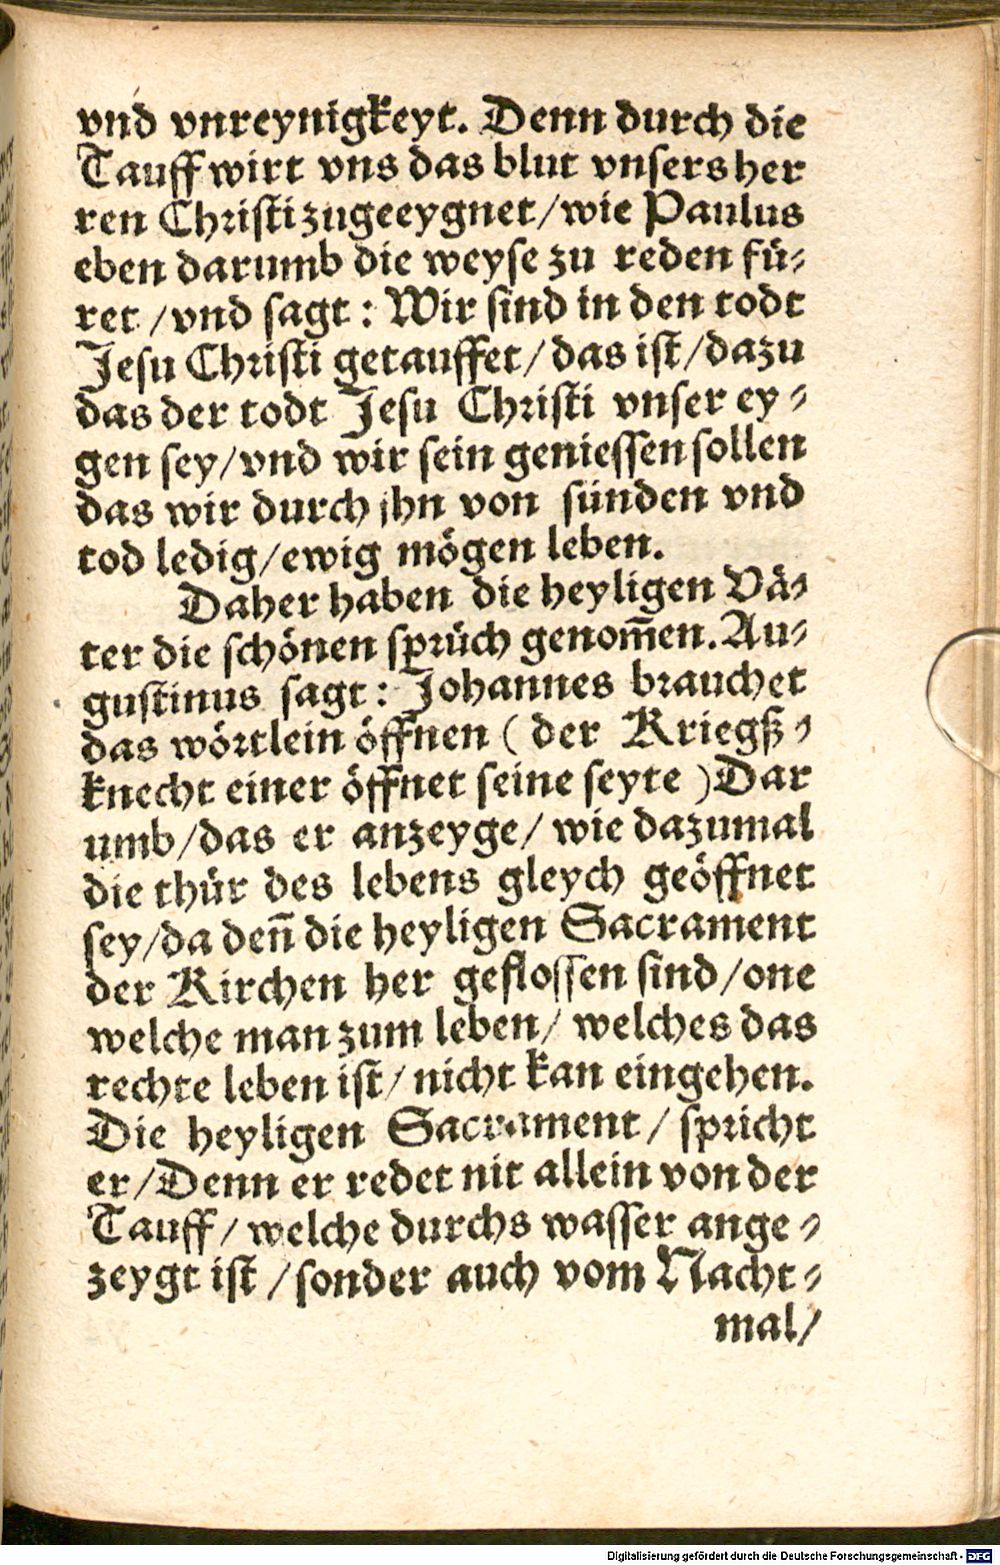 vnd vnreynigkeyt. Denn durch die
Tauff wirt vns das blut vnsers her
ren Christi zugeeygnet/wie Paulus
eben darumb die weyse zu reden fü-
ret /vnd sagt: Wir sind in den todt
Jesu Christi getauffet/das ist/dazu
das der todt Jesu Christi vnser ey-
gen sey/vnd wir sein geniessen sollen
das wir durch jhn von sünden vnd
tod ledig/ewig mögen leben.
Daher haben die heyligen Vä-
ter die schönen sprüch genom̅en. Au-
gustinus sagt: Johannes brauchet
das wörtlein öffnen ( der Kriegß-
knecht einer öffnet seine seyte )Dar
umb/das er anzeyge/ wie dazumal
die thür des lebens gleych geöffnet
sey/da den̅ die heyligen Sacrament
der Kirchen her geflossen sind/one
welche man zum leben/ welches das
rechte leben ist/ nicht kan eingehen.
Die heyligen Sacrament/ spricht
er/Denn er redet nit allein von der
Tauff/ welche durchs wasser ange-
zeygt ist /sonder auch vom Nacht-
mal/
Digitalisierung gefördert durch die Deutsche Forschungsgemeinschaft - DFG